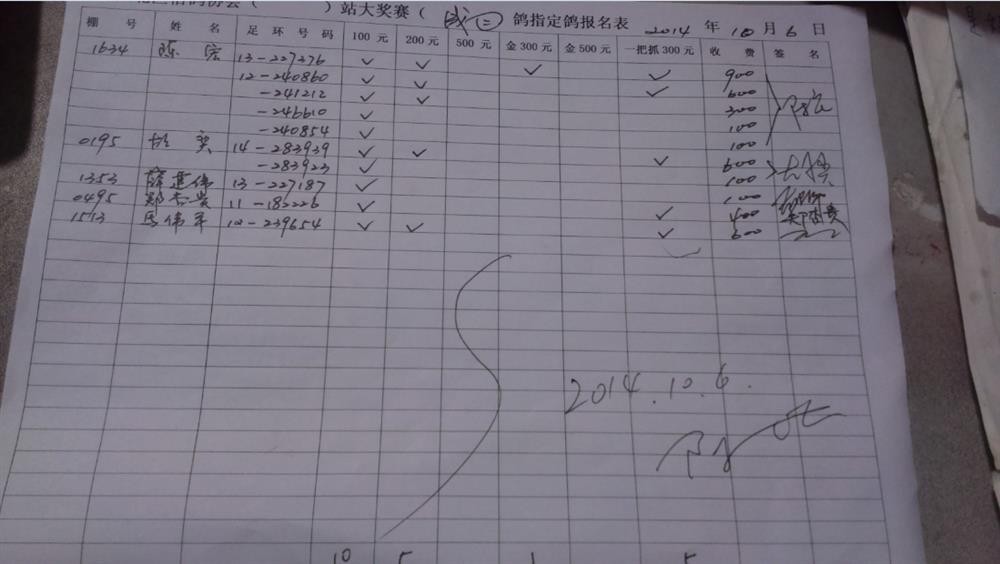 信鸽协会（ ）站大奖赛（ 成二 鸽指定鸽报名表 2014 年 10 月 6 日
棚 号 姓 名 足 环 号 码 100 元 200 元 500 元 金 300 元 金 500 元 一把抓 300 元 收 费 签 名
1634 陈 宏 13-227376 ✓ ✓ ✓ ✓ 900
12-240860 ✓ ✓ ✓ 600
-241212 ✓ ✓ 300
-246610 ✓ 100
-240854 ✓ 100
0195 14-283939 ✓ ✓ ✓ 600
-283923 ✓ 100
1353 薛建伟 13-227187 ✓ 100
0495 11-182226 ✓ ✓ 400
1513 马伟平 12-239654 ✓ ✓ ✓ 600
2014.10.6.
10 5 1 5